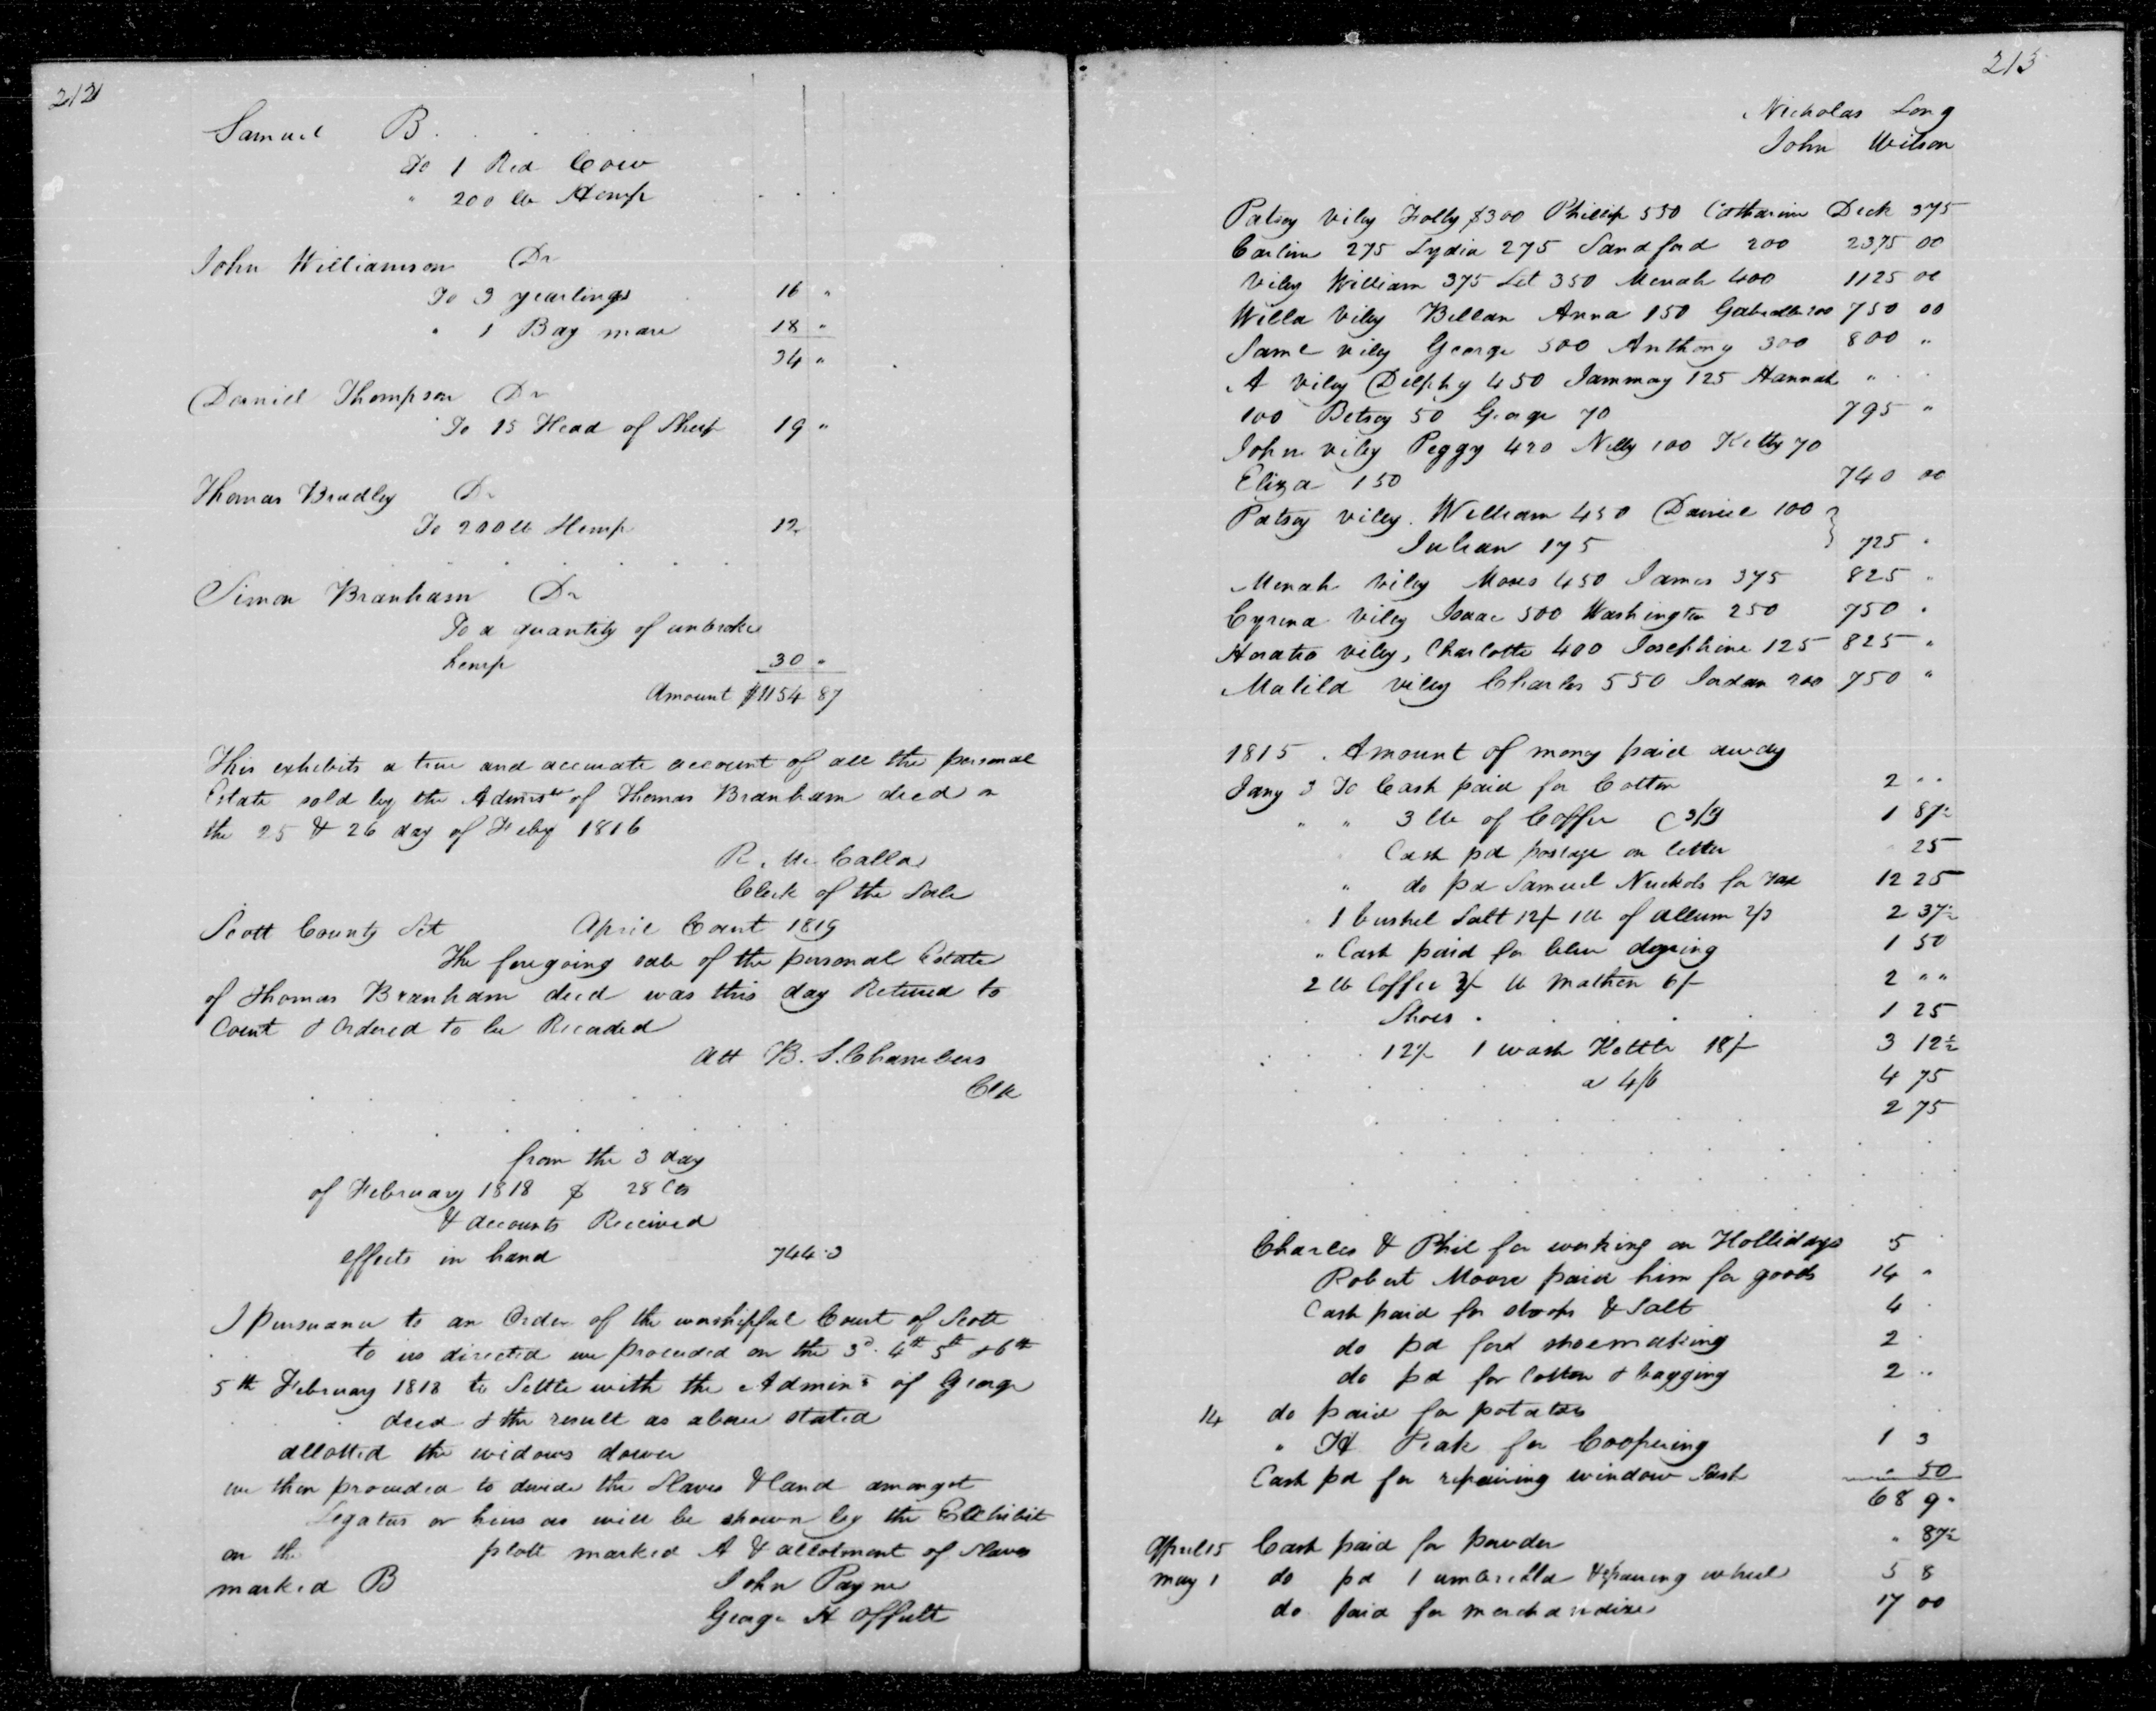 212
Samuel B.
To 1 Red Cow
" 200 lb Hemp
John Williamson Dr
To 3 yearlings 16 "
" 1 Bay mare 18 "
34 "
Daniel Thompson Dr
To 15 Head of Sheep 19 "
Thomas Bradley Dr
To 200 lb Hemp 12
Simon Branham Dr
To a quantity of unbroke
hemp 30 "
Amount $1154 87
This exhibits a true and accurate account of all the personal
Estate sold by the Admistr of Thomas Branham decd on
the 25 & 26 day of Feby 1816
R. Mc Calla
Clerk of the Sale
Scott County Sct April Court 1819
The foregoing sale of the personal Estate
of Thomas Branham decd was this day Retured to
Court & Ordered to be Recorded
Att B. S. Chambers
Clk
from the 3 day
of February 1818 $ 28 Cts
& accounts Received
effects in hand 744.3
I Pursuance to an Order of the worshipful Court of Scott
to us directed we proceeded on the 3d. 4th 5th & 6th
5th February 1818 to Settle with the Admins of George
decd & the result as above stated
allotted the widows dower
we then proceeded to devide the Slaves & land amongst
Legatus or heirs as will be shown by the Exhibit
on the platt marked A & allotment of Slaves
marked B John Payne
George H Offutt
213
Nicholas Long
John Wilson
Patsy Viley Folly $300 Phillip 550 Catharine Dick 375
Carline 275 Lydia 275 Sandford 200 2375 00
Viley William 375 Let 350 Menah 400 1125 00
Willa Viley Anna 150 200 750 00
Same viley George 500 Anthony 300 800 "
A Viley Delphy 450 Jammay 125 Hannah "
100 Betsey 50 George 70 795 "
John viley Peggy 420 Nelly 100 Kitty 70
Eliza 150 740 00
Patsey viley. William 450 Daniel 100
Julian 175 725 "
Menah Viley Moses 450 James 375 825 "
Cyrena Viley Isaac 500 Washington 250 750 "
Horatio viley, Charlotte 400 Josephine 125 825 "
Matild viley Charles 550 Jordan 200 750 "
1815. Amount of money paid away
Jany 3 To Cash paid for Cotton 2 " "
" " 3 lb of Coffee @ 3/9 1 87½
Cash pd postage on letter 25
" do pd Samuel Nuckols for Tax 12 25
1 bushel Salt 12/ 1 lb of allum 2/3 2 37½
" Cash paid for blue dying 1 50
2 lb Coffee 3/ lb 6/ 2 " "
Shoes 1 25
12/ 1 wash Kettle 18/ 3 12½
a 4/6 4 75
2 75
Charles & Phil for working on Hollidays 5
Robert Moore paid him for goods 14 "
Cash paid for & Salt 4
do pd ford shoemaking 2
do pd for Cotton & bagging 2 "
14 do paid for potatoes
" Peak for Coopering 1 3
Cash pd for repairing window Sash " 50
68 9
April 15 Cash paid for powder " 87½
May 1 do pd 1 umbrella & repairing wheel 5 8
do. paid for merchandize 17 00